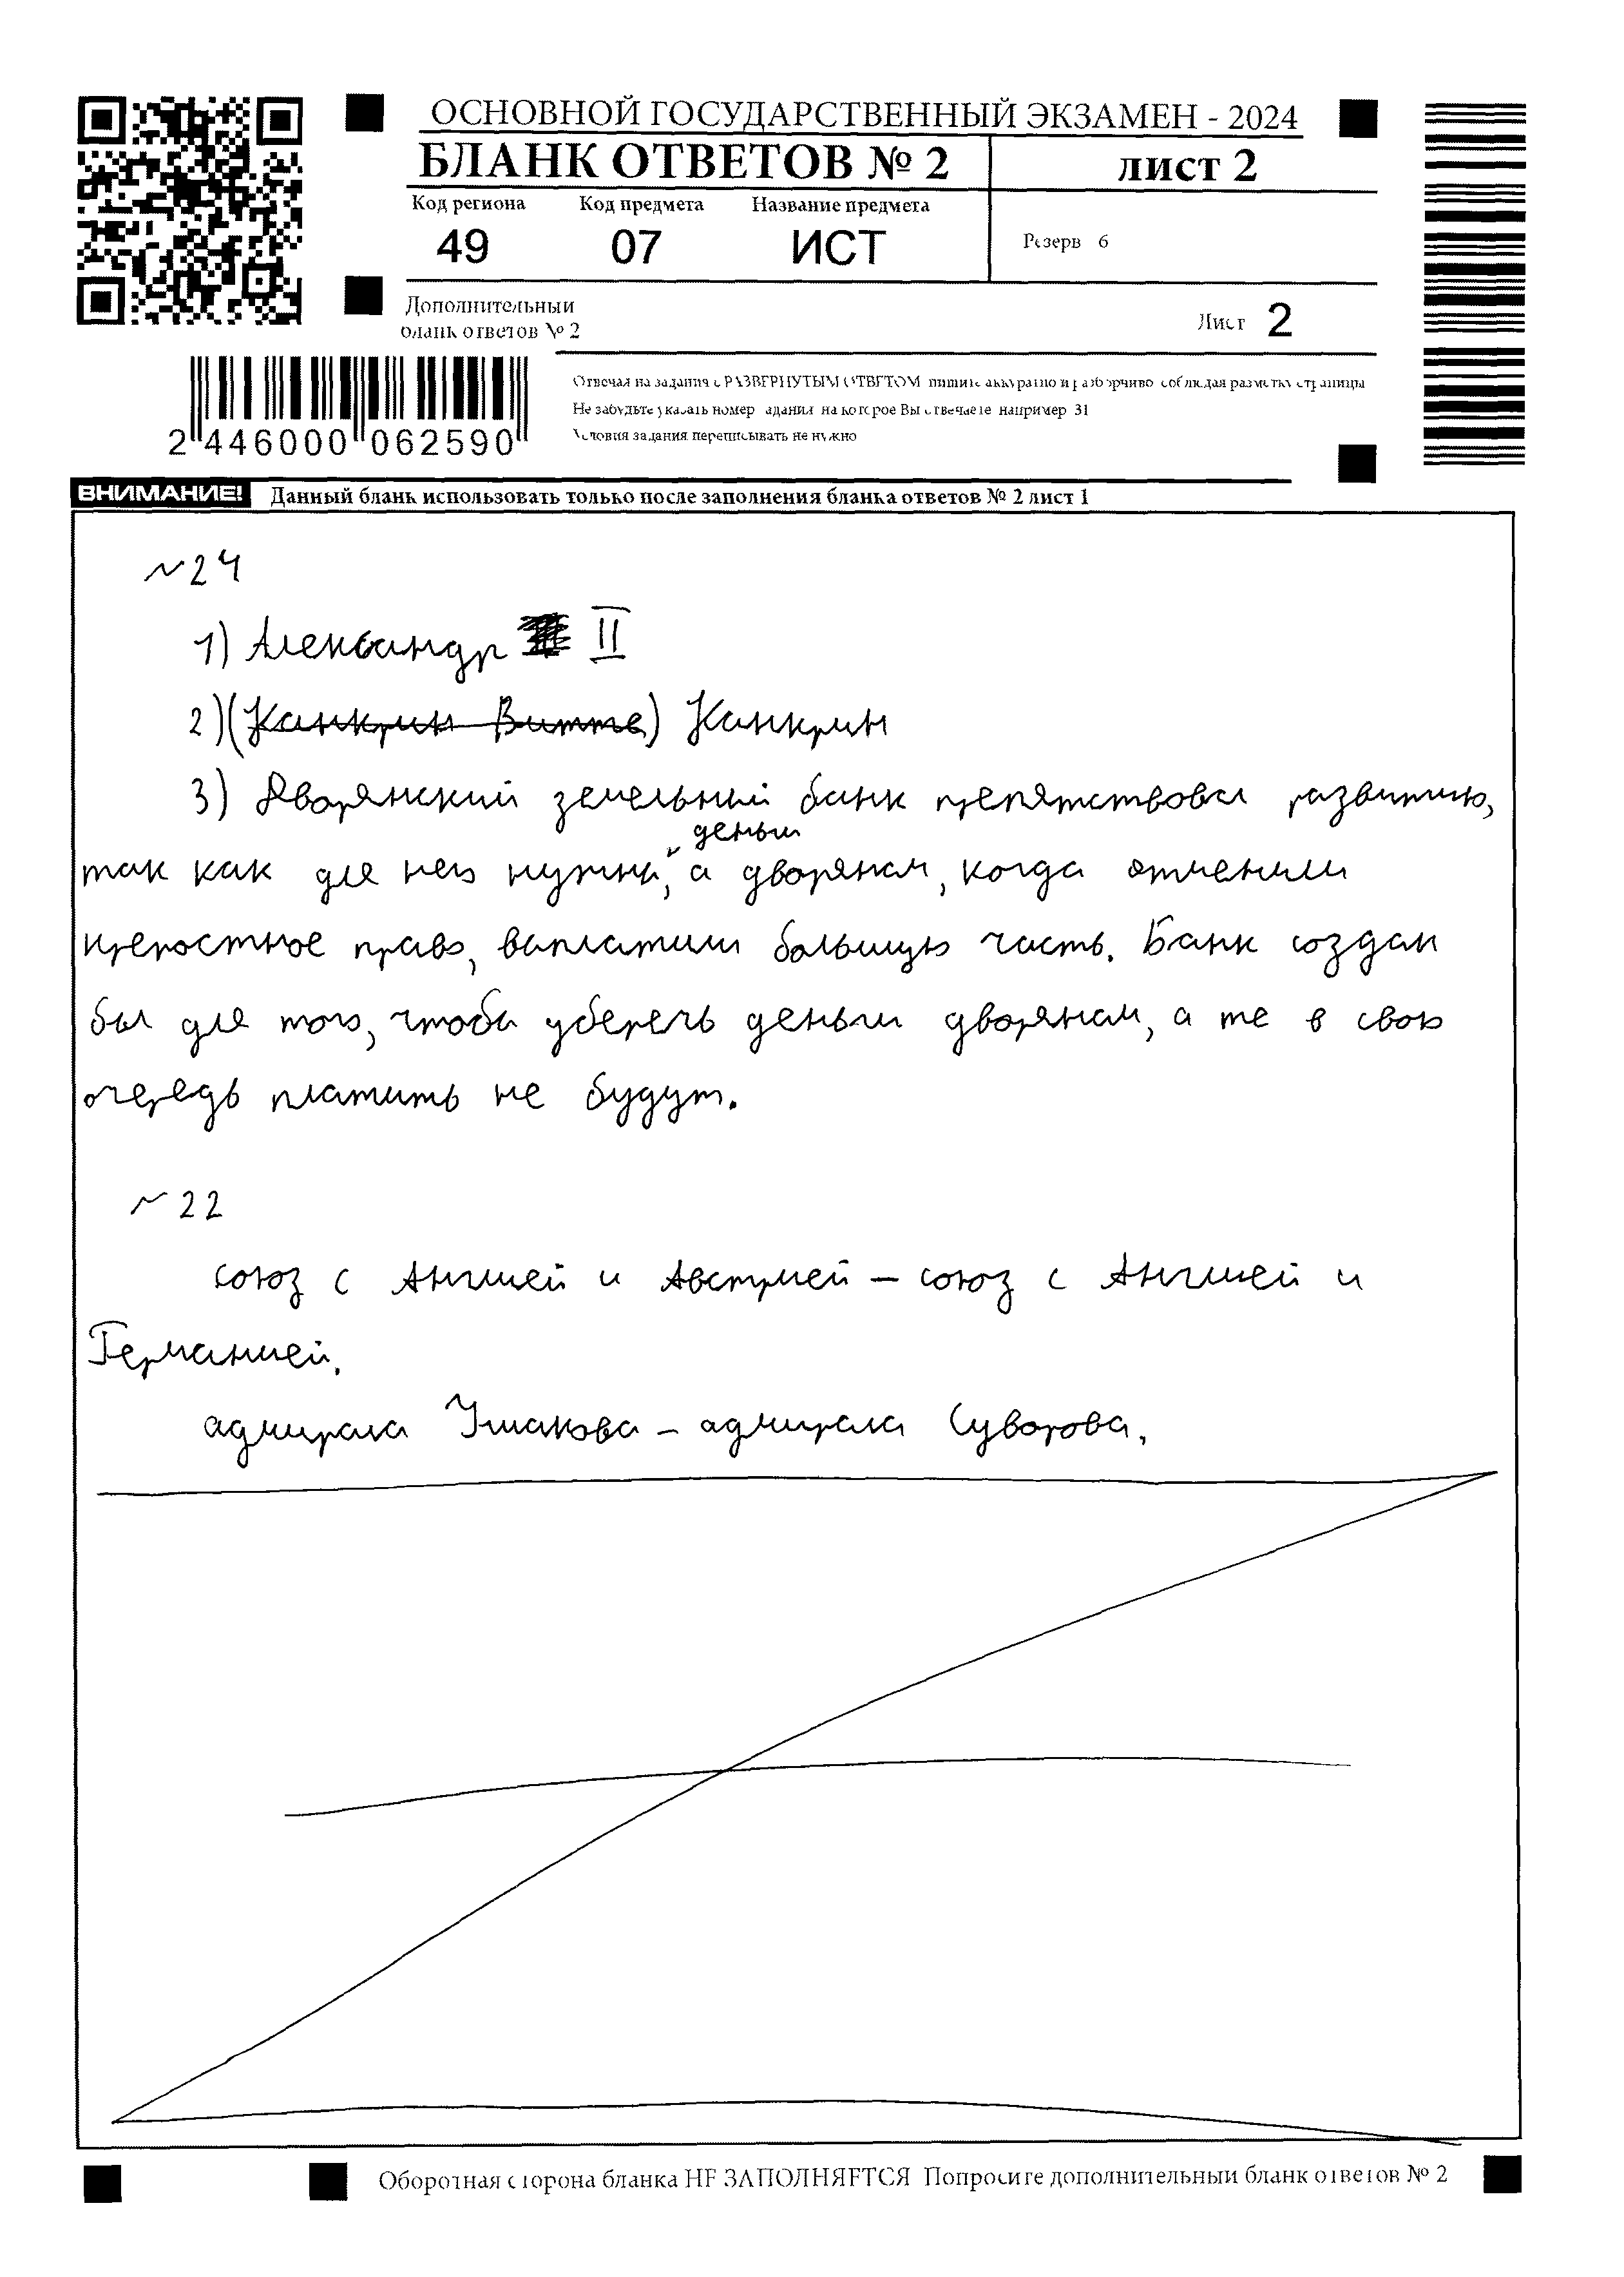 ОСНОВНОЙ ГОСУДАРСТВЕННЫЙ ЭКЗАМЕН - 2024
БЛАНК ОТВЕТОВ № 2
лист 2
Код региона Код предмета Название предмета
49 07 ИСТ
Резерв 6
Дополнительный
бланк ответов № 2
Лист 2
2 446000 062590
Отвечая на задания с РАЗВЕРНУТЫМ ОТВЕТОМ пишите аккуратно и разборчиво соблюдая разметку страницы
Не забудьте указать номер задания на которое Вы отвечаете например 31
Условия задания переписывать не нужно
ВНИМАНИЕ! Данный бланк использовать только после заполнения бланка ответов № 2 лист 1
~24
1) Александр II
2) (Канкрин Витте) Канкрин
3) Дворянский земельный банк препятствовал развитию,
деньги
так как для него нужны, а дворянам, когда отменили
крепостное право, выплатили большую часть. Банк создан
был для того, чтобы уберечь деньги дворянам, а те в свою
очередь платить не будут.
~22
союз с Англией и Австрией – союз с Англией и
Германией.
адмирала Ушакова – адмирала Суворова.
Оборотная сторона бланка НЕ ЗАПОЛНЯЕТСЯ Попросите дополнительный бланк ответов № 2